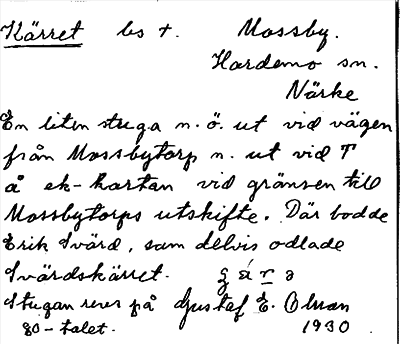 Kärret bs t. Mossby.
Hardemo sn.
Närke
En liten stuga n.ö. ut vid vägen
från Mossbytorp n. ut vid T
å ek-kartan vid gränsen till
Mossbytorps utskifte. Där bodde
Erik Svärd, som delvis odlade
Svärdskärret.
Stugan revs på Gustaf E. Olman
80-talet. 1930